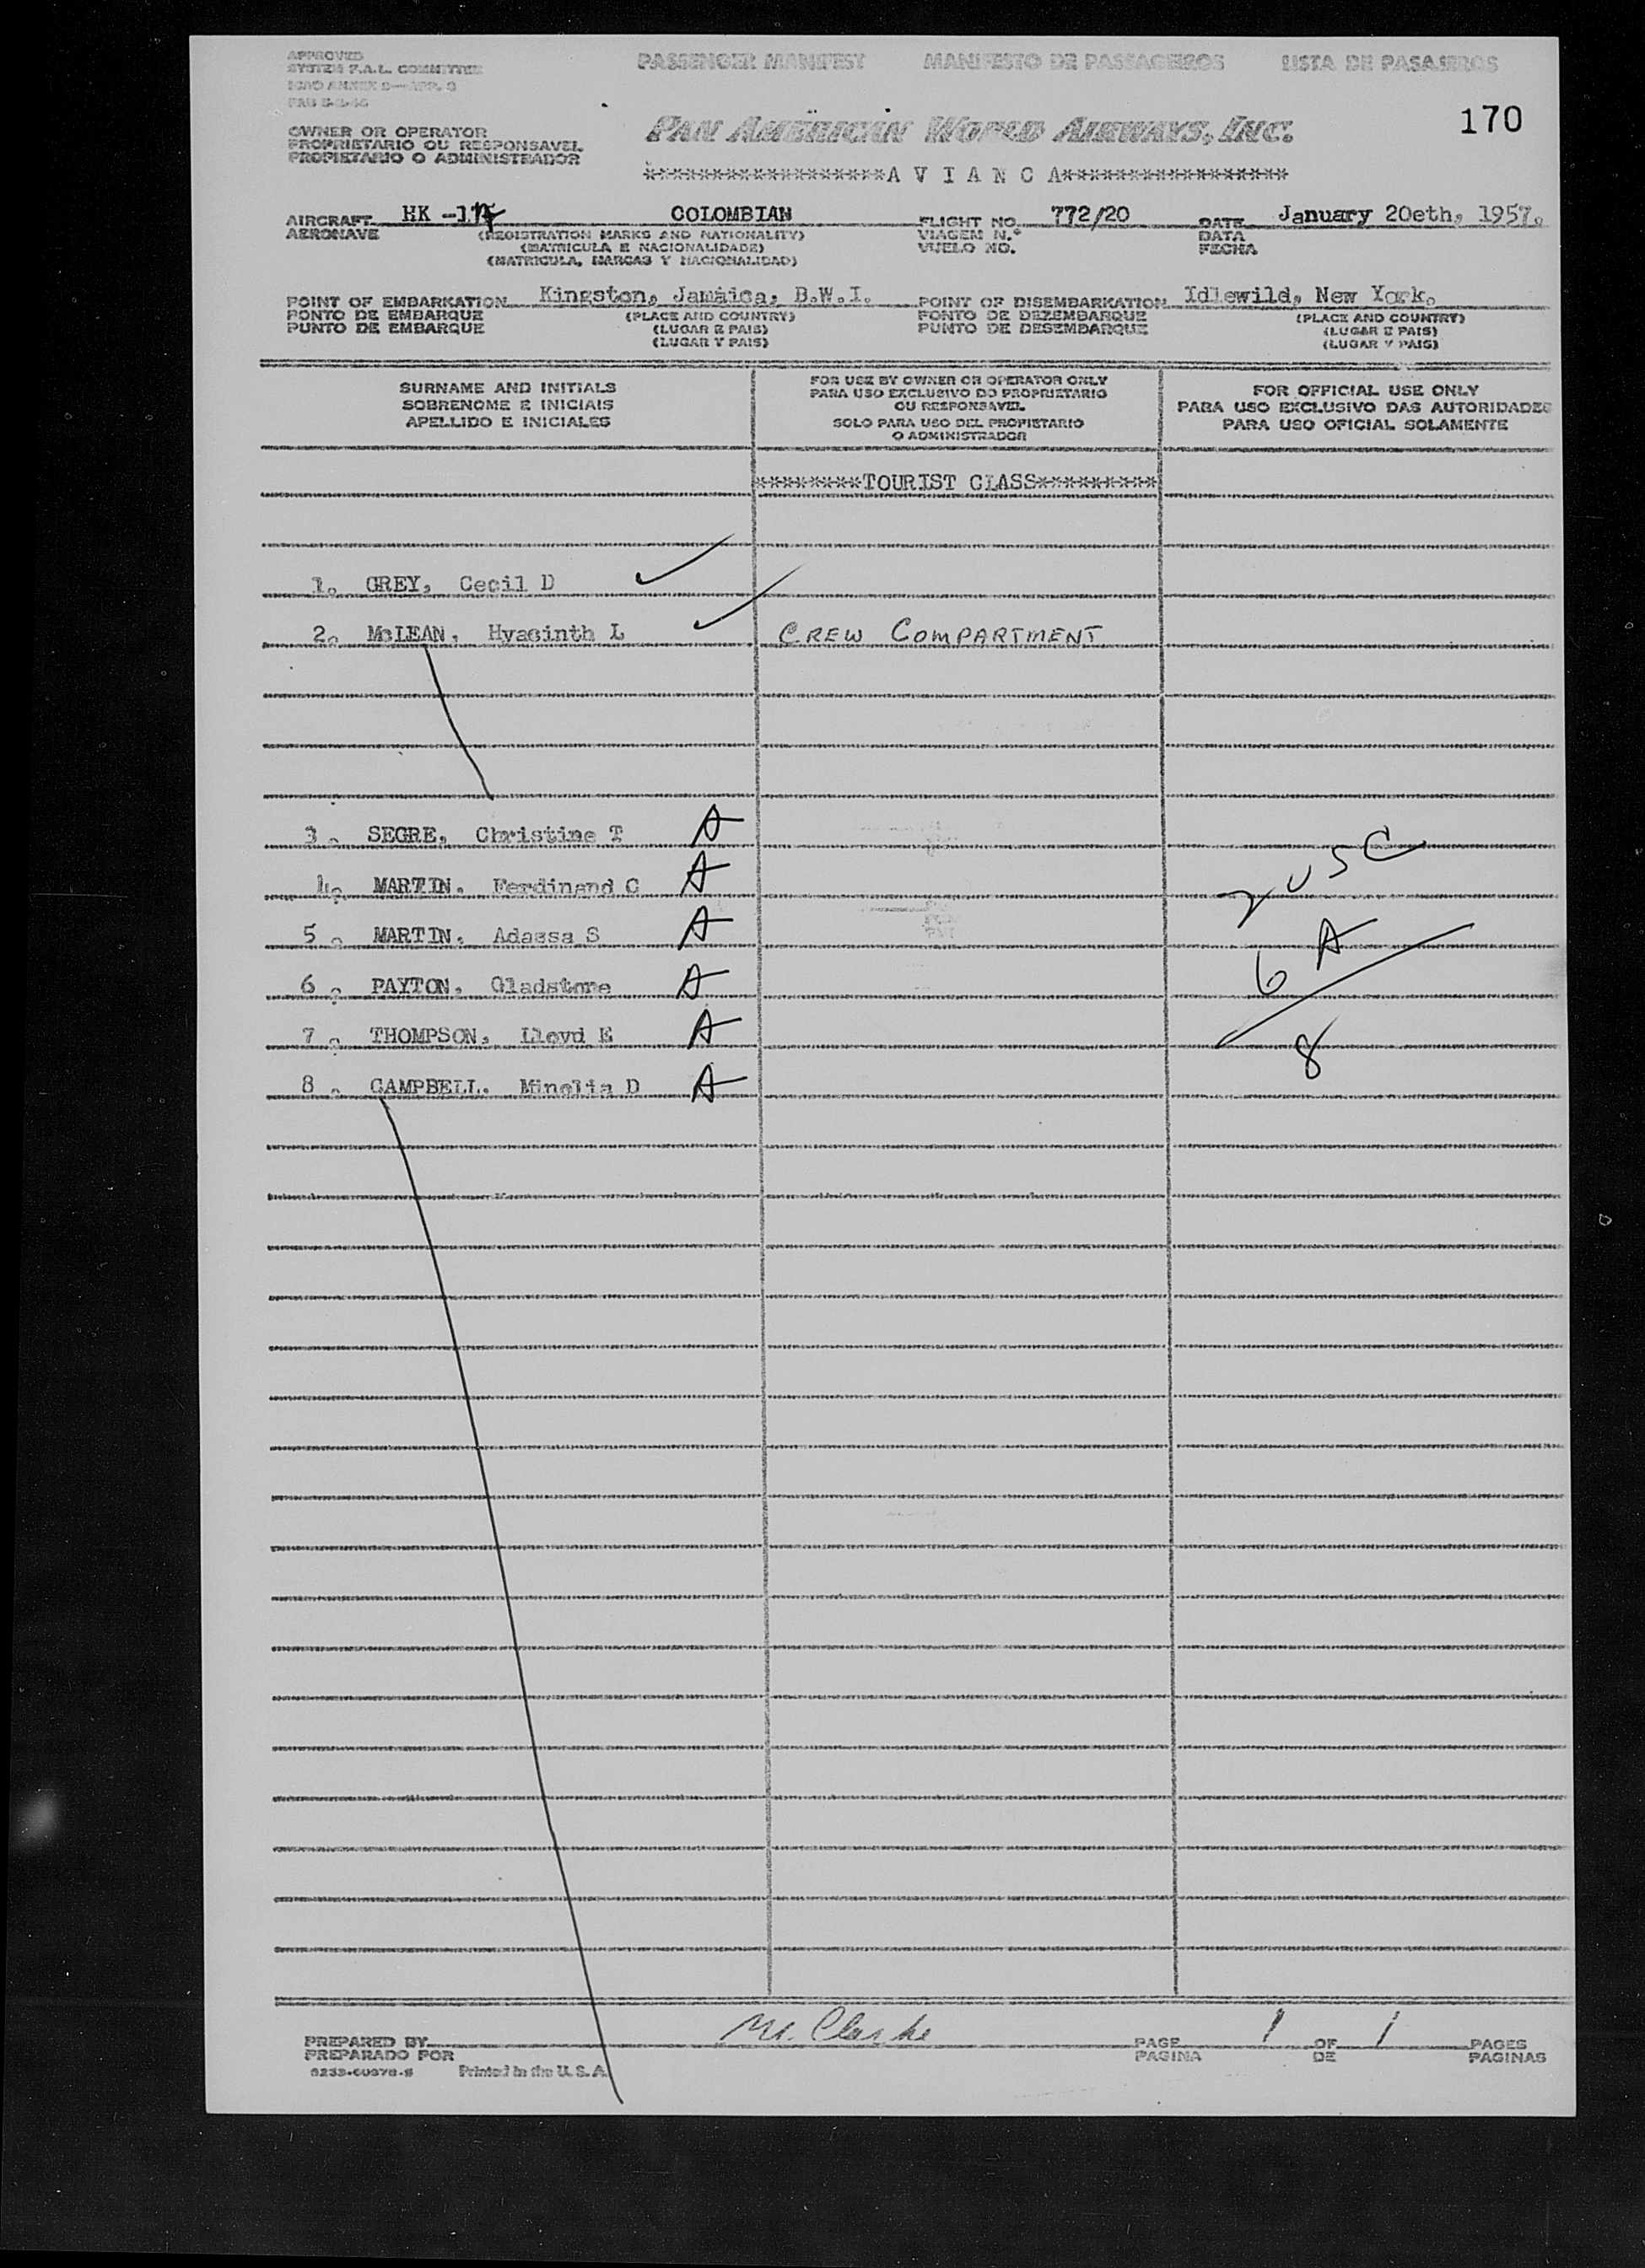 APPROVED
SYSTEM F.A.L. COMMITTEE
ICAO ANNEX 9—APP. 3
PASSENGER MANIFEST MANIFESTO DE PASSAGEIROS LISTA DE PASAJEROS
170
OWNER OR OPERATOR
PROPRIETARIO OU RESPONSAVEL
PROPIETARIO O ADMINISTRADOR
PAN AMERICAN WORLD AIRWAYS, INC.
*******************A V I A N C A******************
AIRCRAFT HK COLOMBIAN FLIGHT NO. 772/20 DATE January 20eth, 1957.
AERONAVE (REGISTRATION MARKS AND NATIONALITY) VIAGEM N.º DATA
(MATRICULA E NACIONALIDADE) VUELO NO. FECHA
(MATRICULA, MARCAS Y NACIONALIDAD)
POINT OF EMBARKATION Kingston, Jamaica, B.W.I. POINT OF DISEMBARKATION Idlewild, New York.
PONTO DE EMBARQUE (PLACE AND COUNTRY) PONTO DE DEZEMBARQUE (PLACE AND COUNTRY)
PUNTO DE EMBARQUE (LUGAR E PAIS) PUNTO DE DESEMBARQUE (LUGAR E PAIS)
(LUGAR Y PAIS) (LUGAR Y PAIS)
SURNAME AND INITIALS
SOBRENOME E INICIAIS
APELLIDO E INICIALES
FOR USE BY OWNER OR OPERATOR ONLY
PARA USO EXCLUSIVO DO PROPRIETARIO
OU RESPONSAVEL
SOLO PARA USO DEL PROPIETARIO
O ADMINISTRADOR
FOR OFFICIAL USE ONLY
PARA USO EXCLUSIVO DAS AUTORIDADES
PARA USO OFICIAL SOLAMENTE
********TOURIST CLASS*********
1. GREY, Cecil D
2. McLEAN, Hyacinth L CREW COMPARTMENT
3. SEGRE, Christine T A
4. MARTIN, Ferdinand C A 2 USC
5. MARTIN, Adassa S A 6 A
6. PAYTON, Gladstone A
7. THOMPSON, Lloyd E A 8
8. CAMPBELL, Minelia D A
PREPARED BY M. Clarke PAGE 1 OF 1 PAGES
PREPARADO POR PAGINA DE PAGINAS
Printed in the U. S. A.